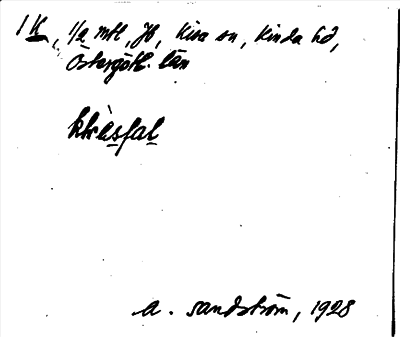 1 K, 1/2 mtl, JB, Kisa sn, Kinda hd,
Östergötl. län
A. Sandström, 1928